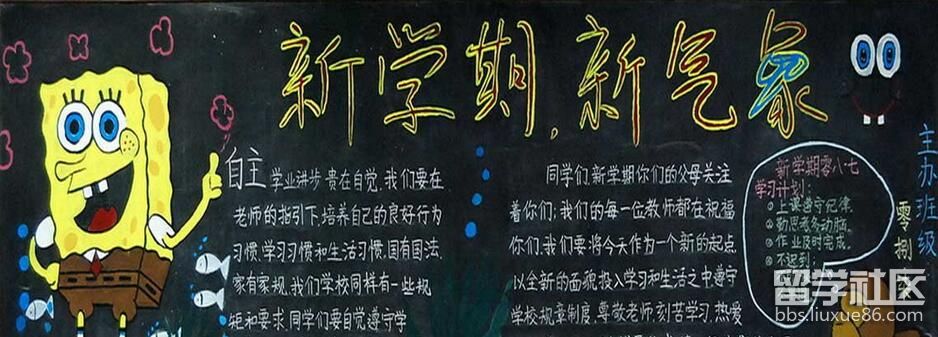 新学期,新气象
自主 学业进步,贵在自觉,我们要在
老师的指引下,培养自己的良好行为
习惯,学习习惯和生活习惯,国有国法,
家有家规,我们学校同样有一些规
矩和要求,同学们要自觉遵守学
同学们,新学期你们的父母关注
着你们;我们的每一位教师都在祝福
你们,我们要将今天作为一个新的起点
以全新的面貌投入学习和生活之中遵守
学校规章制度,尊敬老师,刻苦学习,热爱
新学期零八七
学习计划:
①上课遵守纪律
②勤思考多动脑
③作业及时完成
④不迟到
主办班级
零捌
留学社区
bbs.liuxue86.com